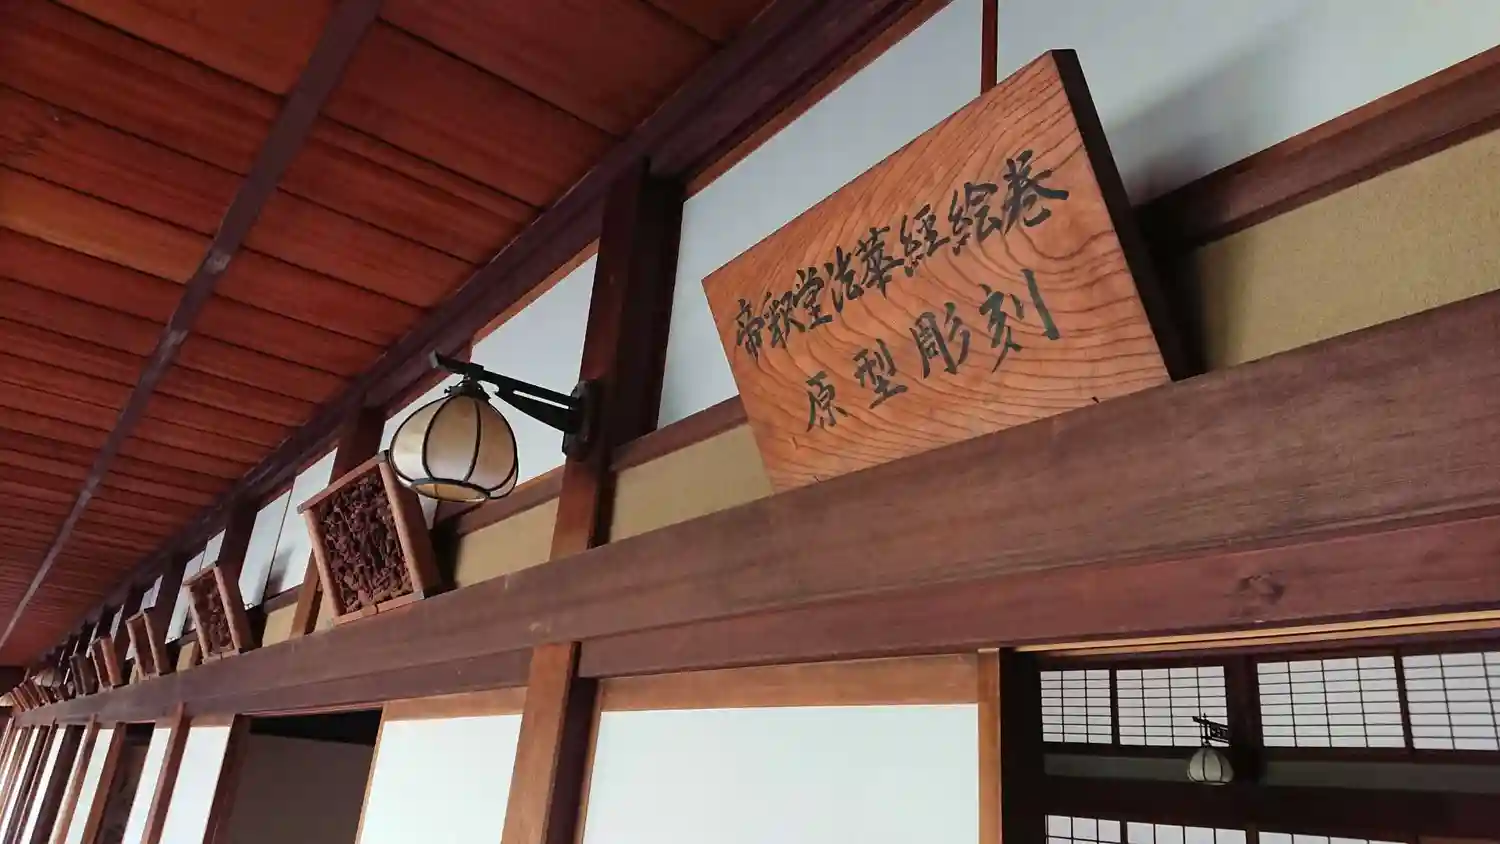 帝釈堂法華經絵巻
原型彫刻